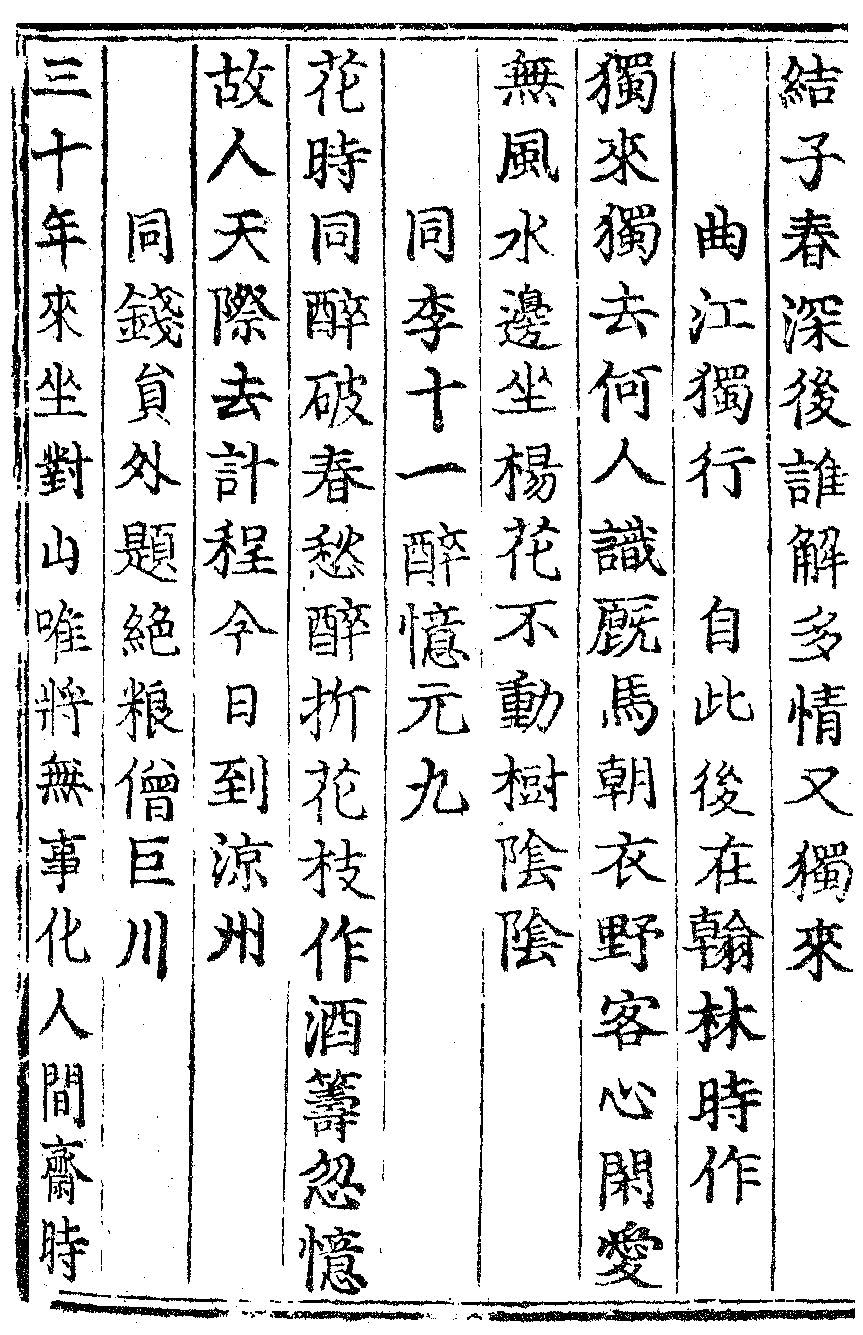 結子春深後誰解多情又獨來
曲江獨行　自此後在翰林時作
獨來獨去何人識厩馬朝衣野客心閑愛
無風水邊坐楊花不動樹陰陰
同李十一醉憶元九
花時同醉破春愁醉折花枝作酒籌忽憶
故人天際去計程今日到涼州
同錢貟外題絶粮僧巨川
三十年來坐對山唯將無事化人間齋時